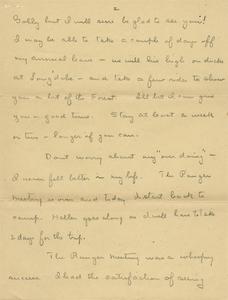 2
Golly but I will sure be glad to see you!
I may be able to take a couple of days off
my annual leave - we will be high on ducks
at Long lake - and take a few rides to show
you a bit of the Forest. I'll bet I can give
you a good time. Stay at least a week
or two - longer if you can.
Dont worry about my "over doing" -
I never felt better in my life. The Ranger
meeting is over and today I start back to
camp. goes along so I will have to take
2 days for the trip.
The Ranger Meeting was a whooping
success I had the satisfaction of seeing